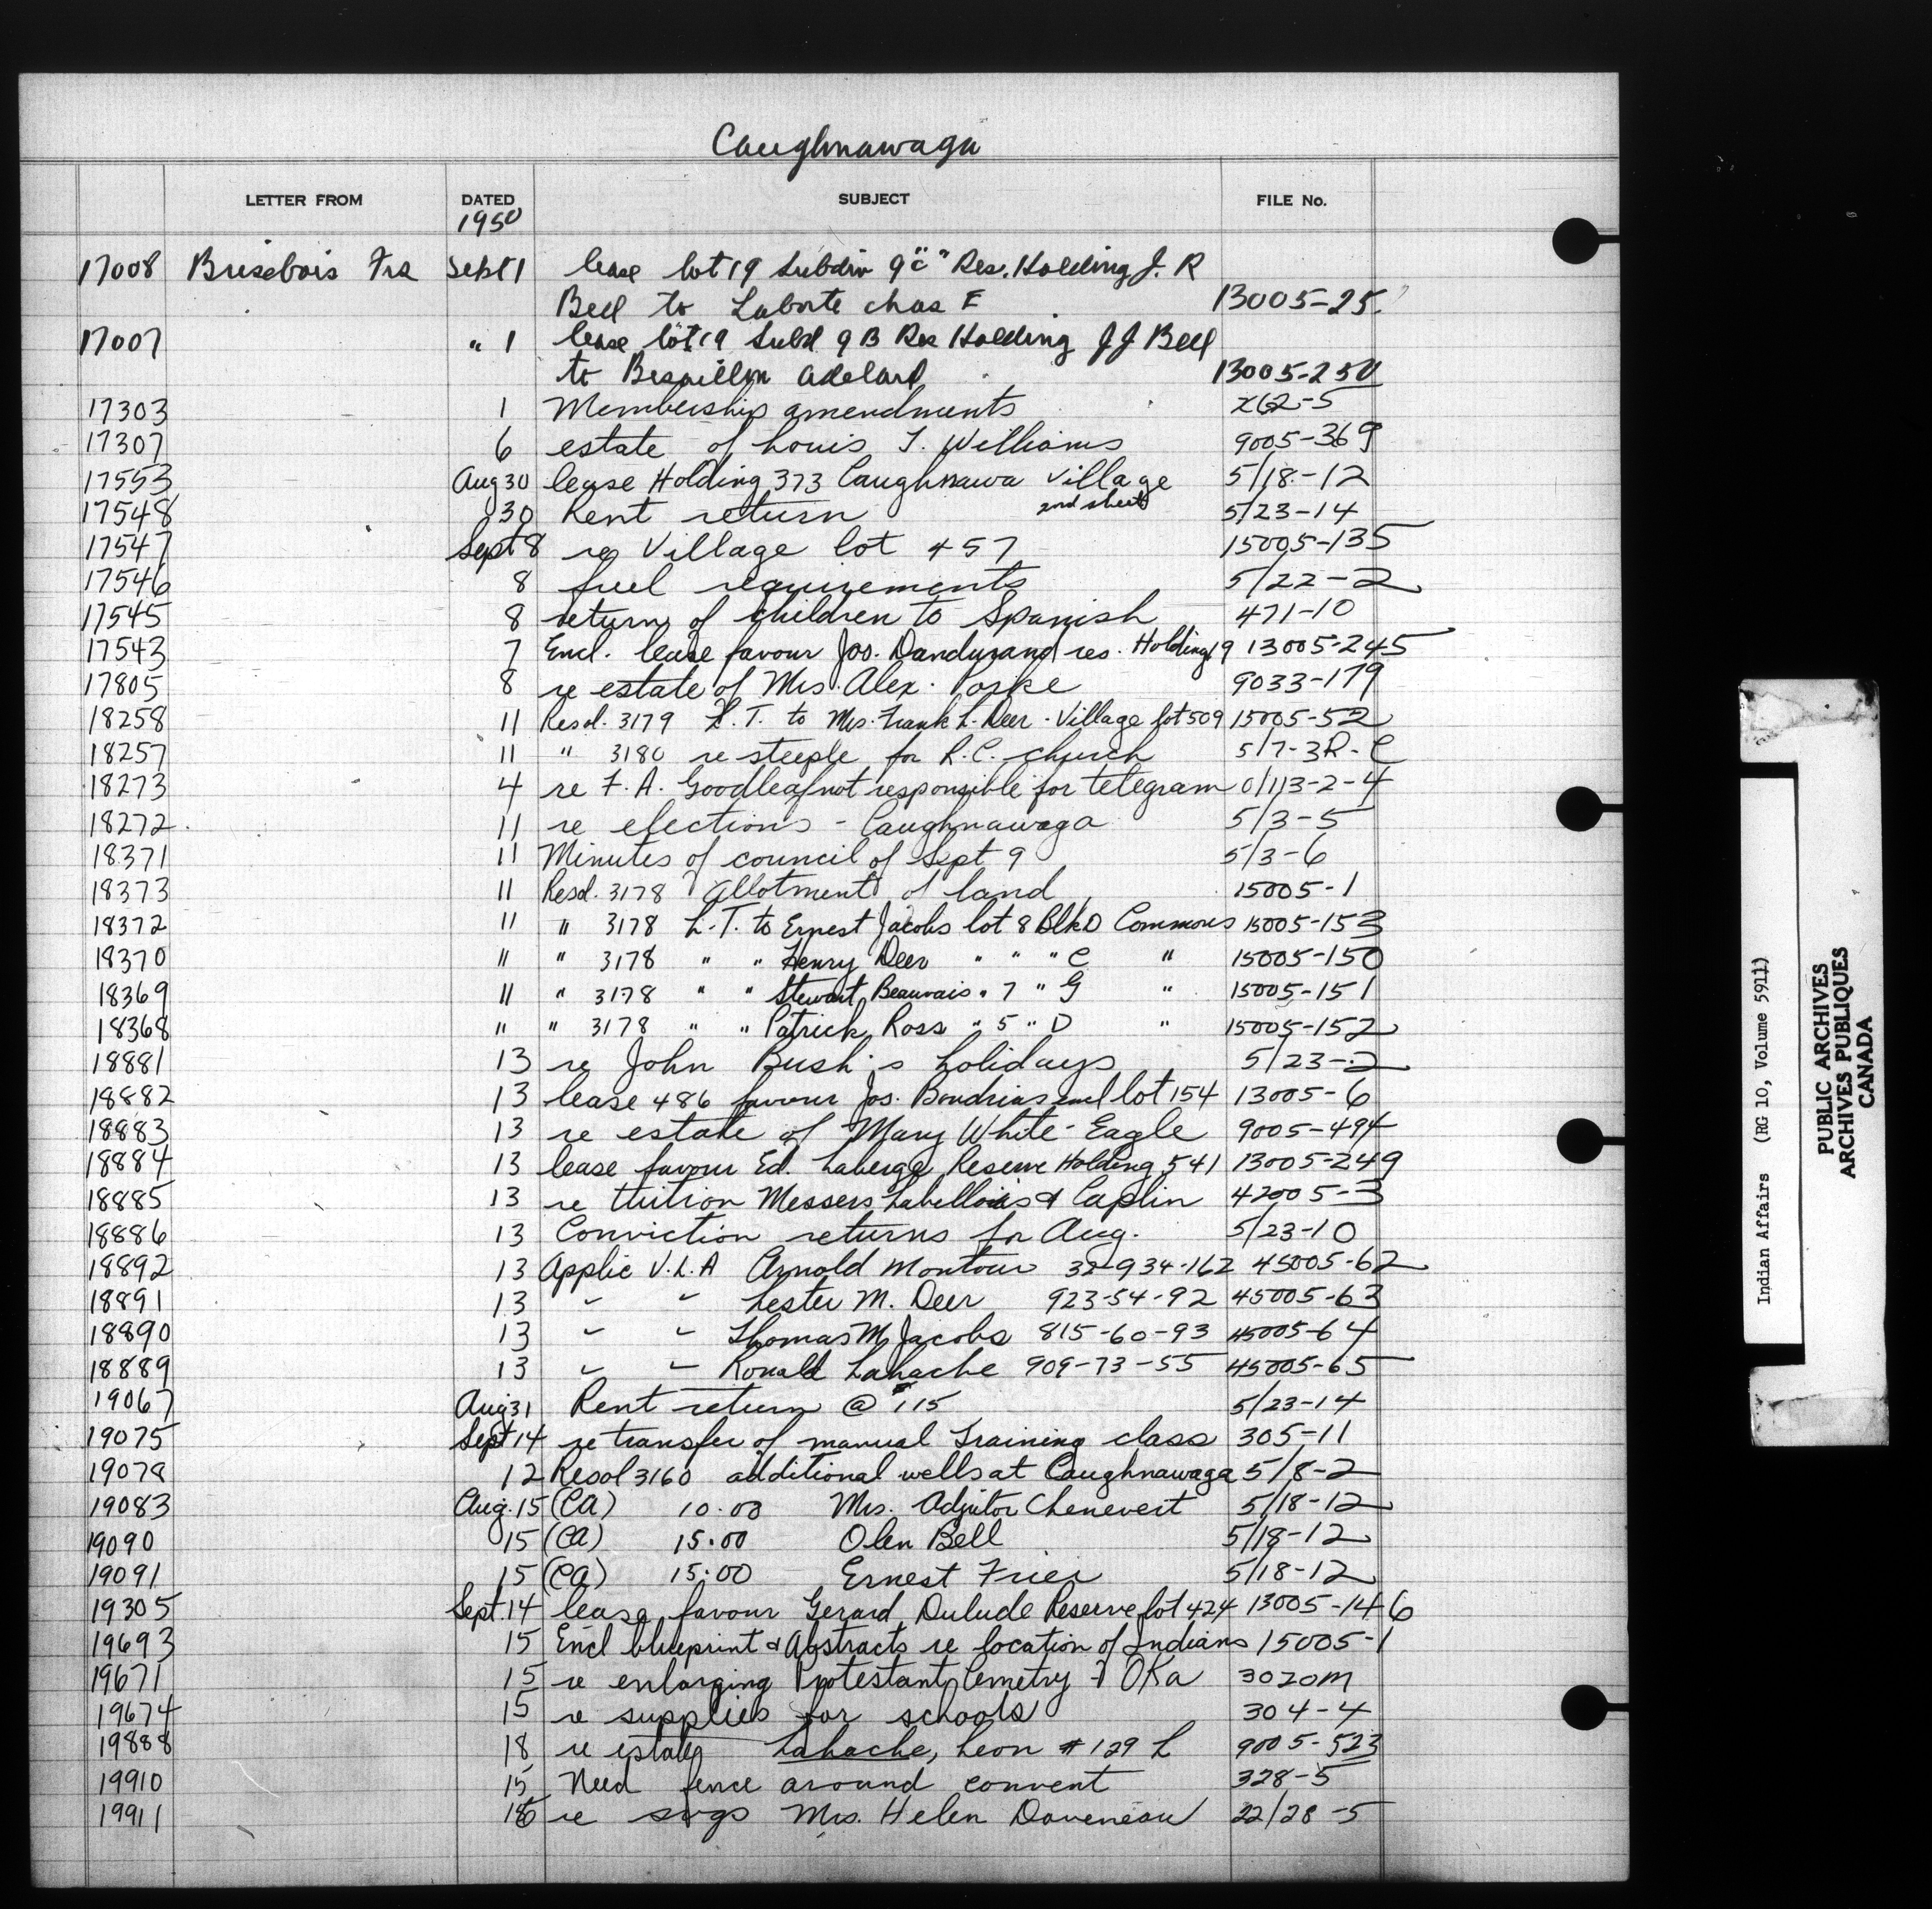 Caughnawaga
LETTER FROM DATED SUBJECT FILE No.
1950
17008 Brisebois Fra Sept 1 lease lot 19 Subdiv 9 "C" Res. Holding J. R
Bell to Laborte chas E 13005-25
17007 " 1 lease lot 19 Subd 9 B Res Holding J J Bell
to adelard 13005-250
17303 1 Membership amendments X62-5
17307 6 estate of Louis T. Williams 9005-369
17553 Aug 30 lease Holding 373 Caughnawa Village 5/18-12
17548 30 Rent return 2nd sheet 5/23-14
17547 Sept 8 re Village lot 457 15005-135
17546 8 fuel requirements 5/22-2
17545 8 return of children to Spanish 471-10
17543 7 Encl. lease favour Jos. Dandurand res. Holding 19 13005-245
17805 8 re estate of Mrs. Alex. 9033-179
18258 11 Resol. 3179 L. T. to Mrs. Frank L. Deer - Village lot 509 15005-52
18257 11 " 3180 re steeple for R.C. church 5/7-3R-C
18273 4 re F. A. Goodleaf not responsible for telegram 0/113-2-4
18272 11 re elections - Caughnawaga 5/3-5
18371 11 Minutes of council of Sept 9 5/3-6
18373 11 Resol. 3178 Allotment of land 15005-1
18372 11 " 3178 L.T. to Ernest Jacobs lot 8 Blk D Commons 15005-153
18370 11 " 3178 " " Henry Deer " " " C " 15005-150
18369 11 " 3178 " " Stewart Beauvais " 7 " G " 15005-151
18368 " " 3178 " " Patrick Ross " 5 " D " 15005-152
18881 13 re John Bush's holidays 5/23-2
18882 13 lease 486 favour Jos. Boudrias lot 154 13005-6
18883 13 re estate of Mary White-Eagle 9005-494
18884 13 lease favour Ed. Laberge Reserve Holding 541 13005-249
18885 13 re tuition Messers Labellois & Caplin 42005-3
18886 13 Conviction returns for Aug. 5/23-10
18892 13 Applic V.L.A Arnold Montour 32-934-162 45005-62
18891 13 " " Lester M. Deer 923-54-92 45005-63
18890 13 " " Thomas M Jacobs 815-60-93 45005-64
18889 13 " " Ronald Lahache 909-73-55 45005-65
19067 Aug 31 Rent return @ 115 5/23-14
19075 Sept 14 re transfer of manual Training class 305-11
19078 12 Resol 3160 additional wells at Caughnawaga 5/8-2
19083 Aug. 15 (CA) 10.00 Mrs. Adjutor Chenevert 5/18-12
19090 15 (CA) 15.00 Olen Bell 5/18-12
19091 15 (CA) 15.00 Ernest Frier 5/18-12
19305 Sept. 14 lease favour Gerard Dulude Reserve lot 424 13005-146
19693 15 Encl blueprint & Abstracts re location of Indians 15005-1
19671 15 re enlarging Protestant Cemetry - Oka 3020M
19674 15 re supplies for schools 304-4
19888 18 re estate Lahache, Leon # 129 L 9005-523
19910 15 Need fence around convent 328-5
19911 re Mrs. Helen Daveneau 22/28-5
Indian Affairs (RG 10, Volume 5911)
PUBLIC ARCHIVES
ARCHIVES PUBLIQUES
CANADA